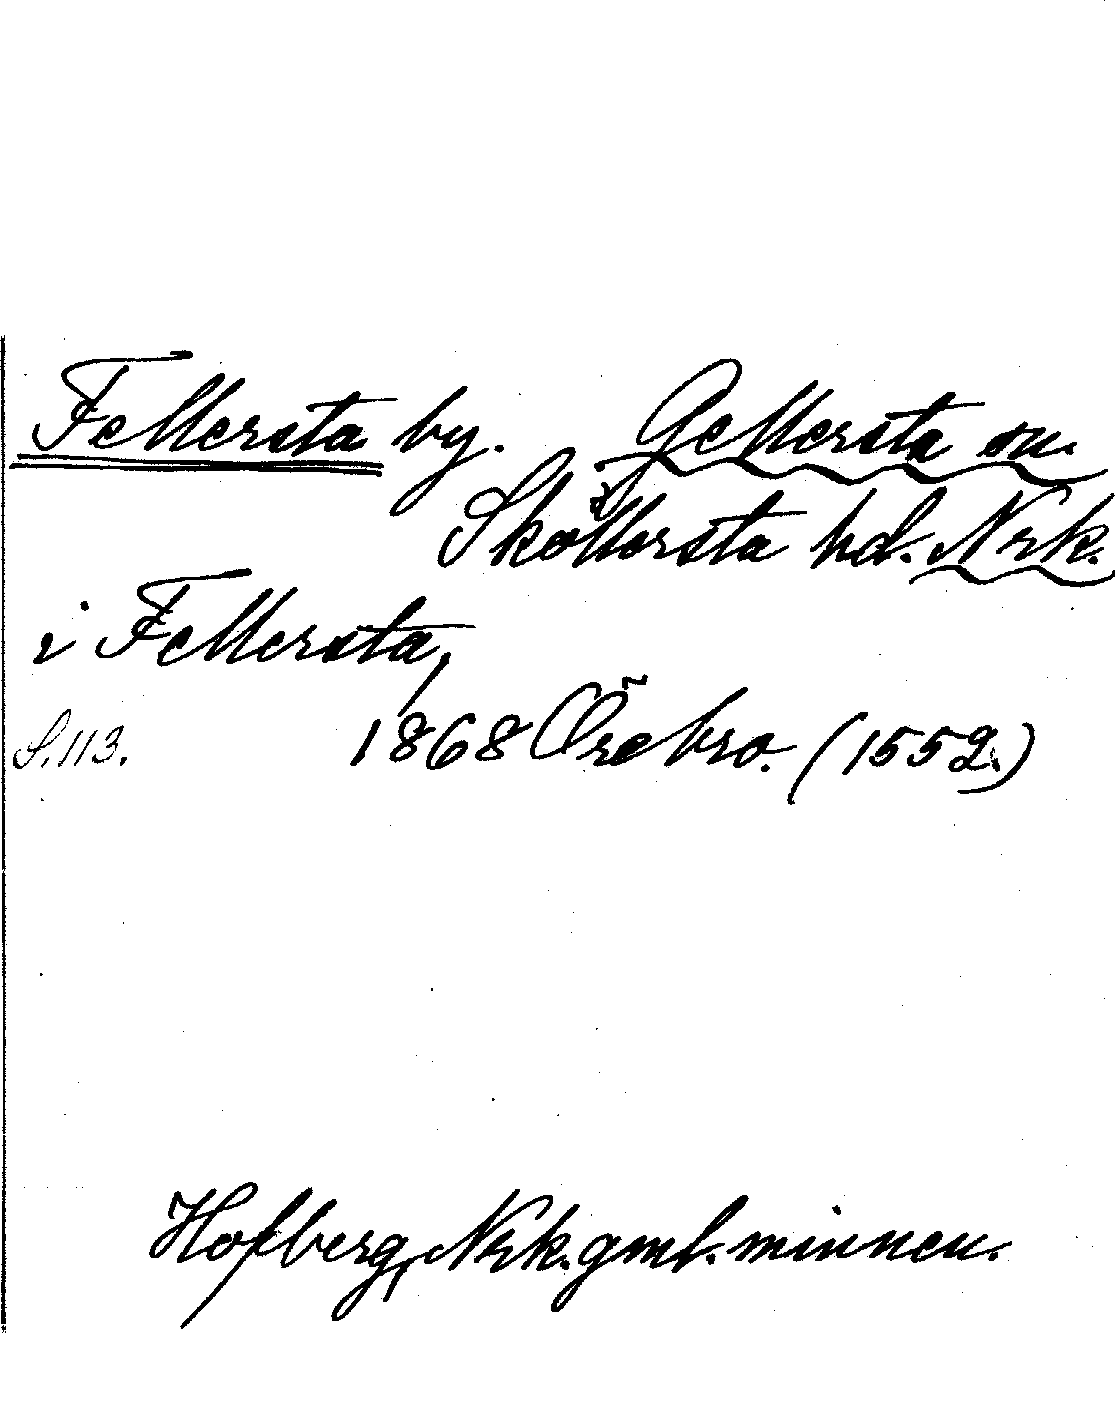 Fellersta by. Gellersta sn.
Sköllersta hd. Nrk.
i Fellersta,
S. 113. 1868 Örebro. (1552.)
Hofberg, Nrk. gml. minnen.